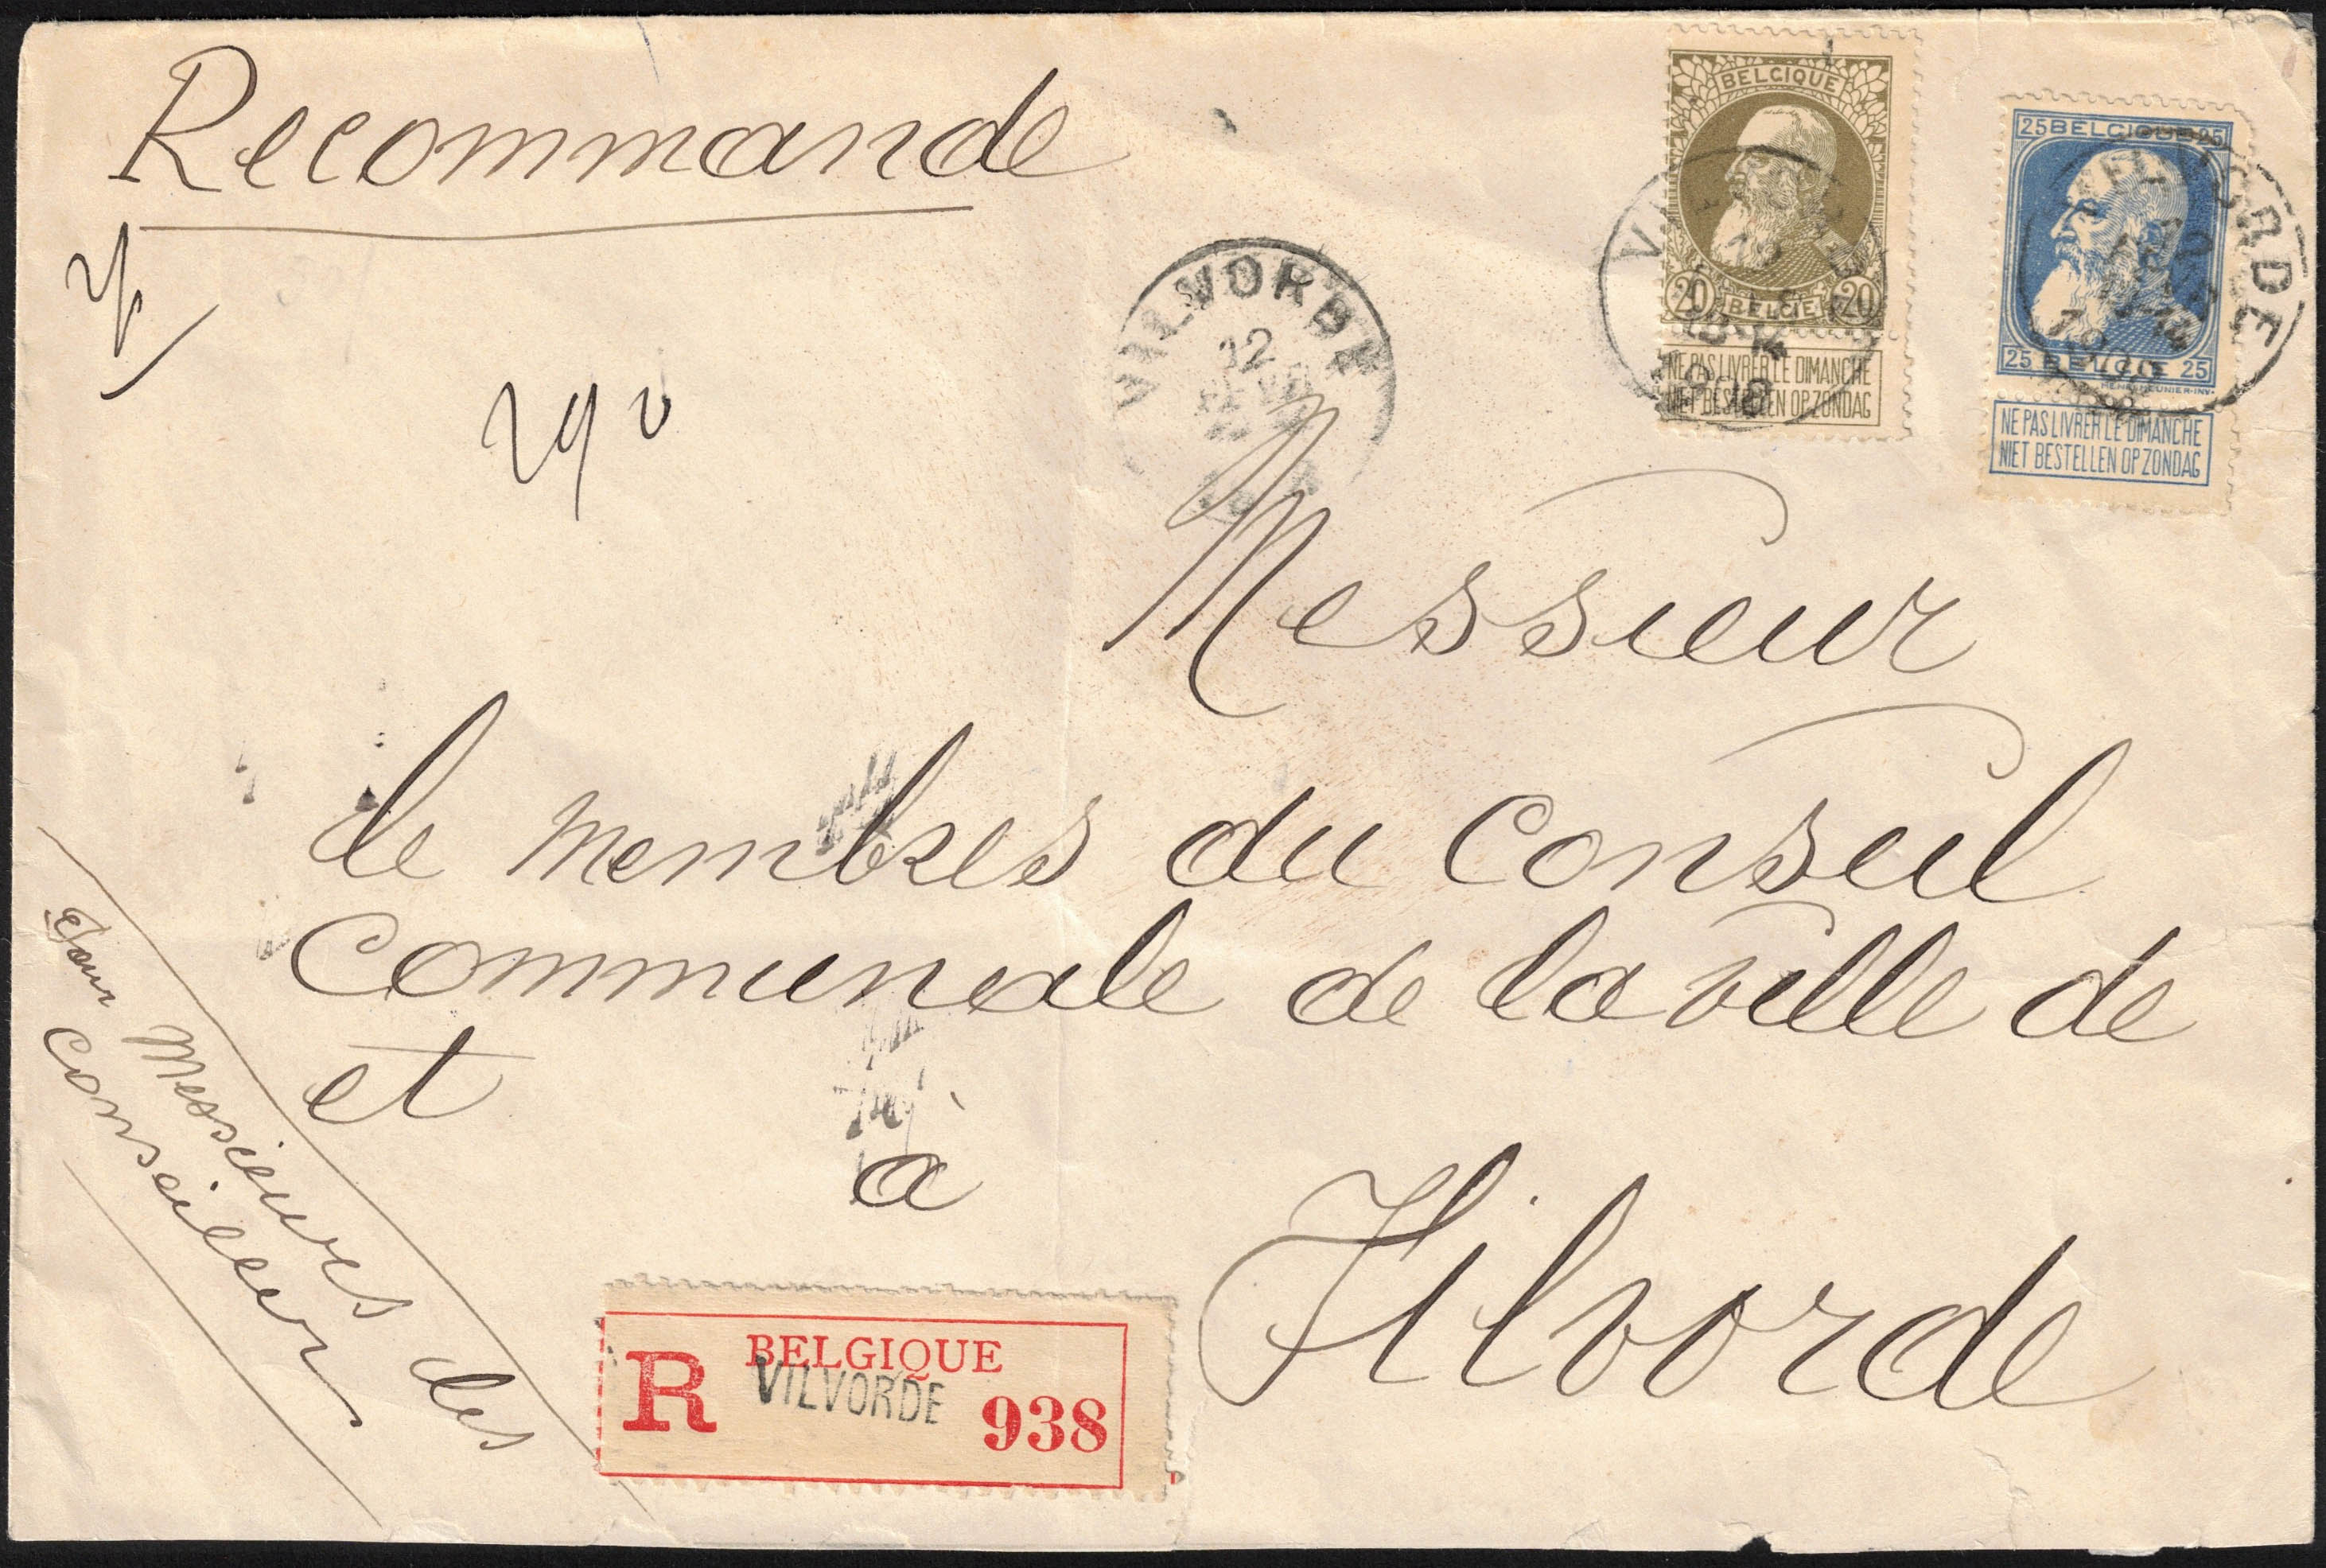 Recommande
BELGIQUE
20 20
BELGIE
NE PAS LIVRER LE DIMANCHE
NIET BESTELLEN OP ZONDAG
25 BELGIQUE 25
25 BELGIE 25
NE PAS LIVRER LE DIMANCHE
NIET BESTELLEN OP ZONDAG
VILVORDE
12
VILVORDE
Messieur
de membres du Conseil
Communeale de la ville de
et
à
Vilvorde
Pour
Messieurs des
Conseiller
BELGIQUE
R VILVORDE 938